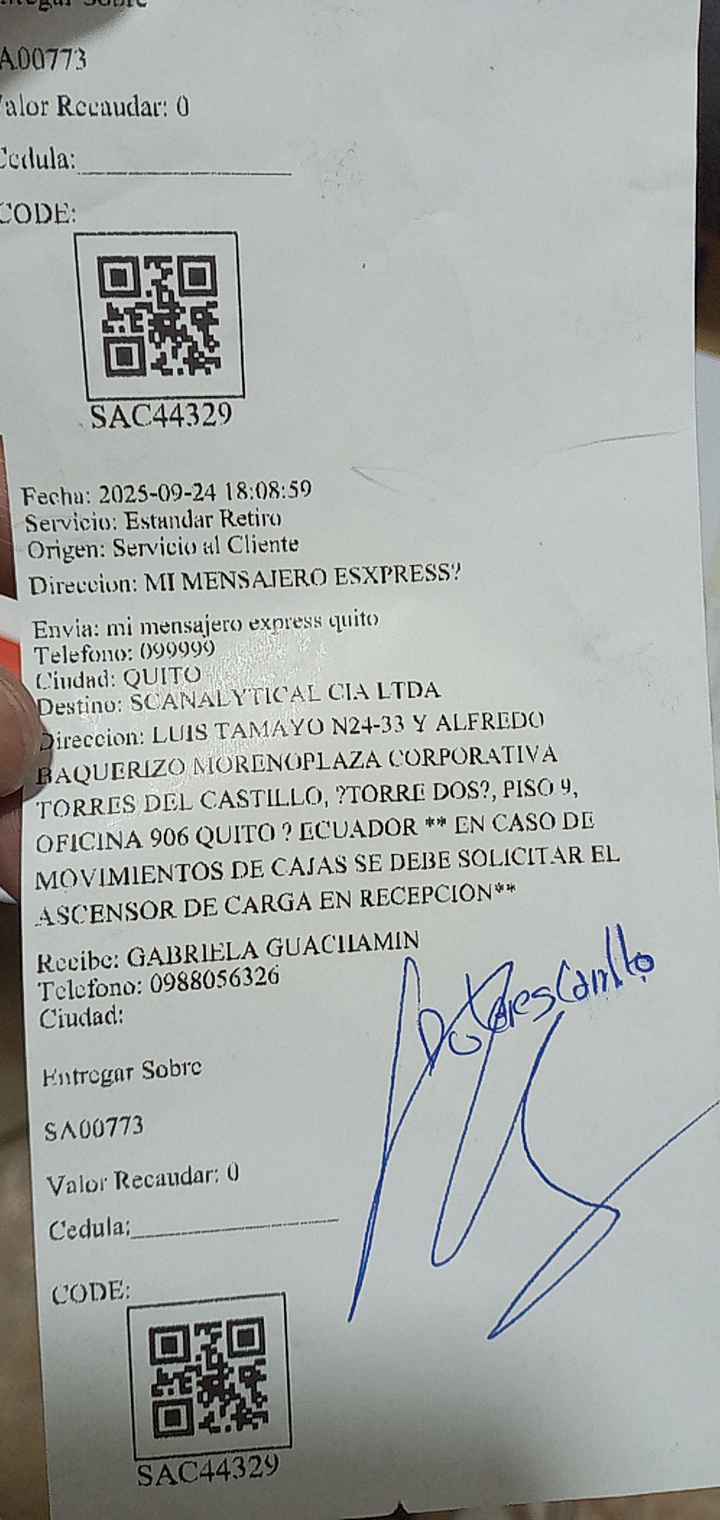 Entregar Sobre
SA00773
Valor Recaudar: 0
Cedula:
CODE:
SAC44329
Fecha: 2025-09-24 18:08:59
Servicio: Estandar Retiro
Origen: Servicio al Cliente
Direccion: MI MENSAJERO ESXPRESS?
Envia: mi mensajero express quito
Telefono: 099999
Ciudad: QUITO
Destino: SCANALYTICAL CIA LTDA
Direccion: LUIS TAMAYO N24-33 Y ALFREDO
BAQUERIZO MORENOPLAZA CORPORATIVA
TORRES DEL CASTILLO, ?TORRE DOS?, PISO 9,
OFICINA 906 QUITO ? ECUADOR ** EN CASO DE
MOVIMIENTOS DE CAJAS SE DEBE SOLICITAR EL
ASCENSOR DE CARGA EN RECEPCION**
Recibe: GABRIELA GUACHAMIN
Telefono: 0988056326
Ciudad:
Entregar Sobre
SA00773
Valor Recaudar: 0
Cedula:
CODE:
SAC44329